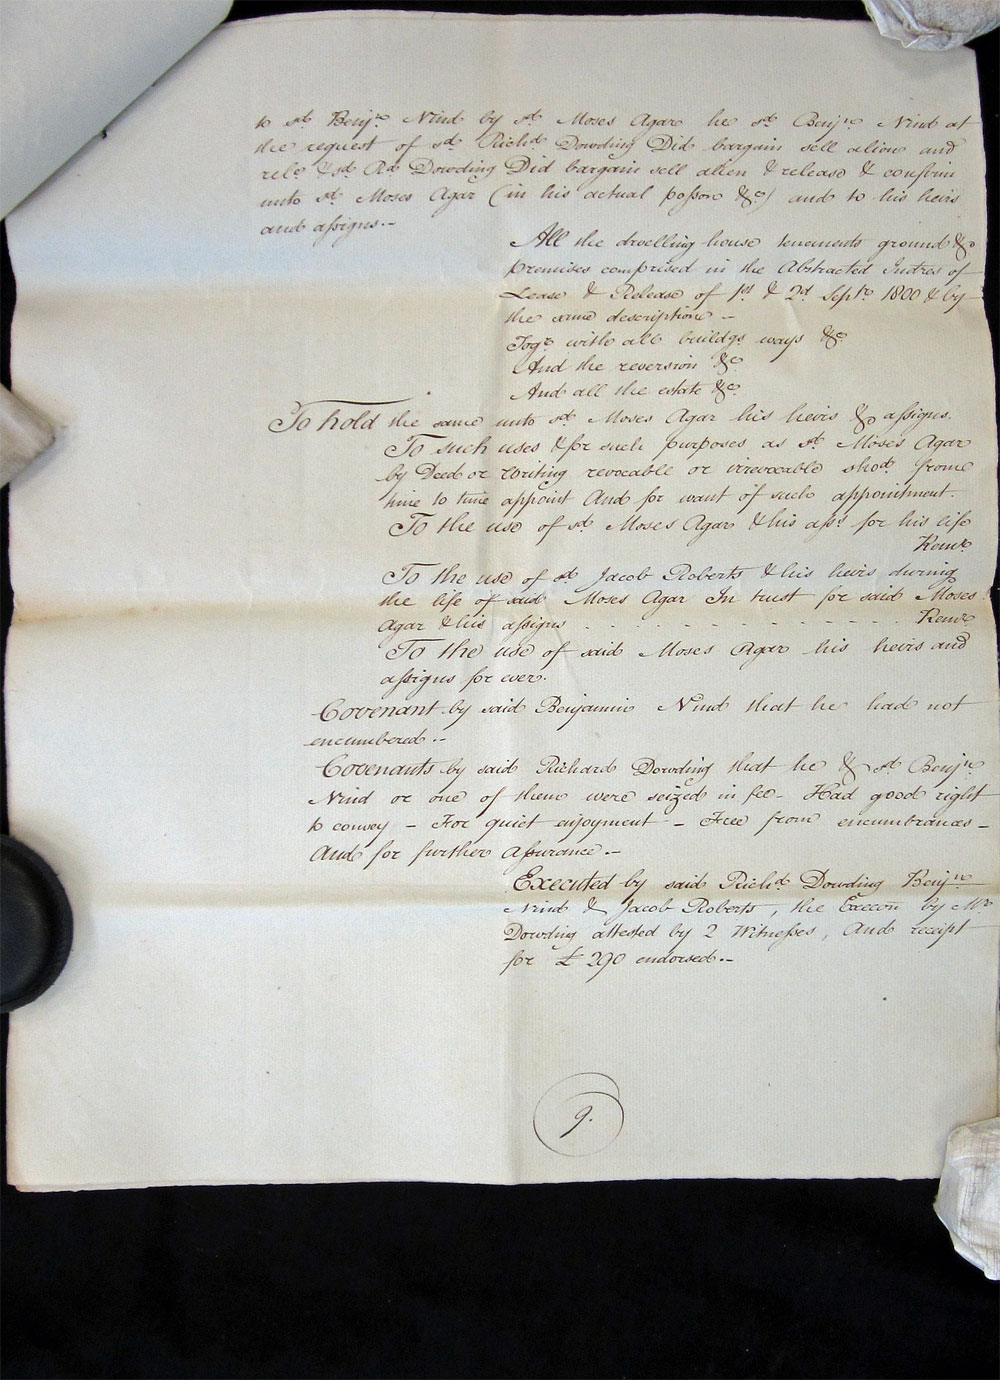 to sd. Benjn. Nind by sd. Moses Agar he sd. Benjn. Nind at
the request of sd. Richd. Dowding Did bargain sell alien and
rele. & sd. Rd. Dowding Did bargain sell alien & release & confirm
unto sd. Moses Agar (in his actual posson &c) and to his heirs
and assigns.-
All the dwelling house tenements ground &c
premises comprised in the Abstracted Indres of
Lease & Release of 1st & 2d Septr. 1800 & by
the same description -
Togr. with all buildgs ways &c
And the reversion &c
And all the estate &c.
To hold the same unto sd. Moses Agar his heirs & assigns.
To such uses & for such purposes as sd. Moses Agar
by Deed or writing revocable or irrevocable shod. from
time to time appoint And for want of such appointment.
To the use of sd. Moses Agar & his asss. for his life
Remr.
To the use of sd. Jacob Roberts & his heirs during
the life of said Moses Agar In trust for said Moses
Agar & his assigns . . . . . . . . Remr.
To the use of said Moses Agar his heirs and
assigns for ever.
Covenant by said Benjamin Nind that he had not
encumbered.-
Covenants by said Richard Dowding that he & sd. Benjn.
Nind or one of them were seized in fee - Had good right
to convey - For quiet enjoyment - Free from encumbrances -
And for further Assurance.-
Executed by said Richd. Dowding Benjn.
Nind & Jacob Roberts, the Execon by Mr.
Dowding attested by 2 Witnesses, And receipt
for £290 endorsed.-
9.